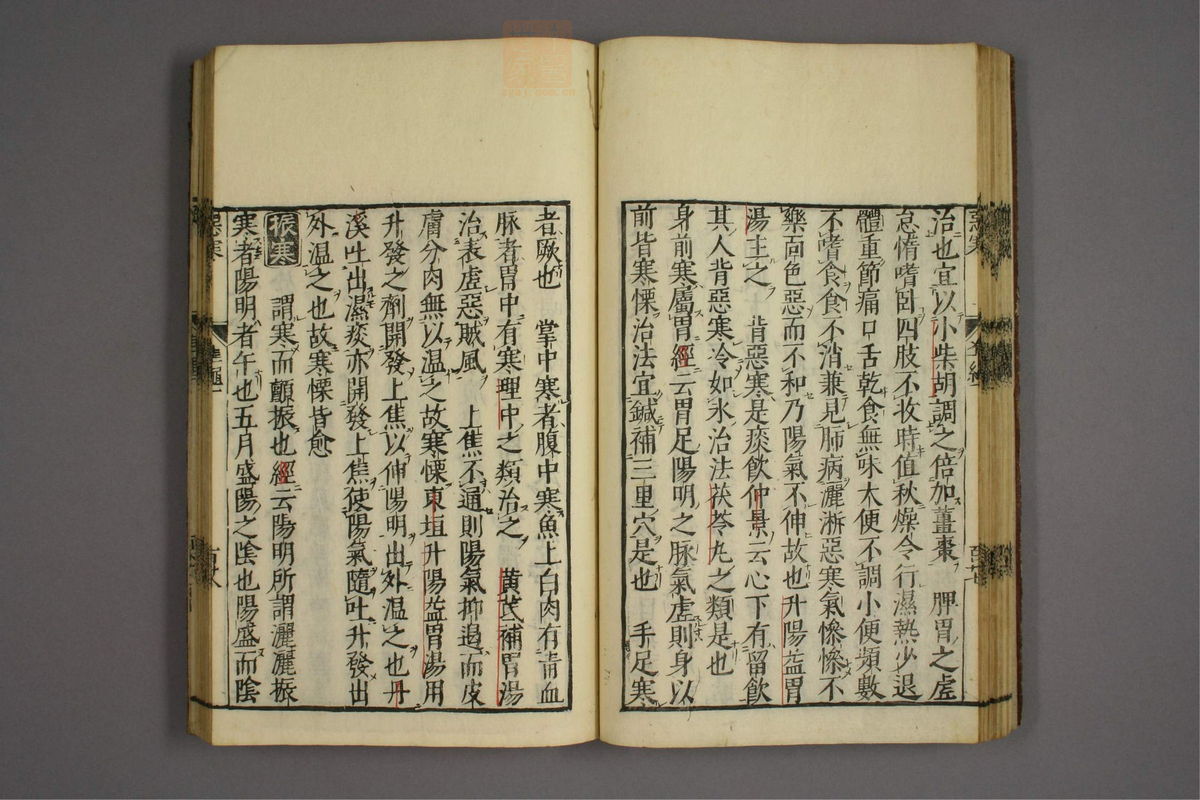 治也宜以小柴胡調之倍加薑棗 胛胃之虗
怠惰嗜卧四肢不收時值秋燥令行濕熱少退
體重節痛口舌乾食無味大便不調小便頻數
不嗜食食不消兼見肺病灑淅惡寒氣慘慘不
樂面色惡而不和乃陽氣不伸故也升陽益胃
湯主之 背惡寒是痰飲仲景云心下有留飲
其人背惡寒冷如氷治法茯苓丸之類是也
身前寒屬胃經云胃足陽明之脉氣虗則身以
前皆寒慄治法宜鍼補三里穴是也 手足寒
者厥也 掌中寒者腹中寒魚上白肉有青血
脉者胃中有寒理中之類治之 黄芪補胃湯
治表虗惡賊風 上焦不通則陽氣抑遏而皮
膚分肉無以温之故寒慄東垣升陽益胃湯用
升發之劑開發上焦以伸陽明出外温之也丹
溪吐出濕痰亦開發上焦使陽氣隨吐升發出
外温之也故寒慄皆愈
振寒
謂寒而顫振也經云陽明所謂灑灑振
寒者陽明者午也五月盛陽之陰也陽盛而陰